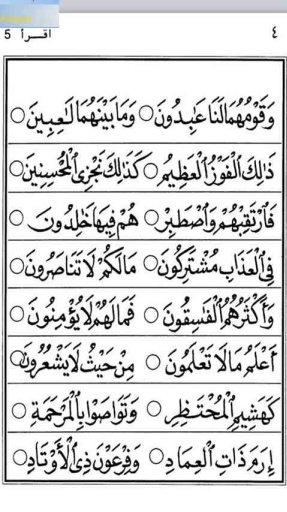 ٤ اقـرأ 5
وَقَوْمُهُمَا لَنَا عَٰبِدُونَ ○ وَمَا بَيْنَهُمَا لَٰعِبِينَ ○
ذَٰلِكَ الْفَوْزُ الْعَظِيمُ ○ كَذَٰلِكَ نَجْزِي الْمُحْسِنِينَ ○
فَارْتَقِبْهُمْ وَاصْطَبِرْ ○ هُمْ فِيهَا خَٰلِدُونَ ○
فِي الْعَذَابِ مُشْتَرِكُونَ ○ مَا لَكُمْ لَا تَنَاصَرُونَ ○
وَأَكْثَرُهُمُ الْفَٰسِقُونَ ○ فَمَا لَهُمْ لَا يُؤْمِنُونَ ○
أَعْلَمُ مَا لَا تَعْلَمُونَ ○ مِنْ حَيْثُ لَا يَشْعُرُونَ ○
كَهَشِيمِ الْمُحْتَظِرِ ○ وَتَوَاصَوْا بِالْمَرْحَمَةِ ○
إِرَمَ ذَاتِ الْعِمَادِ ○ وَفِرْعَوْنَ ذِي الْأَوْتَادِ ○